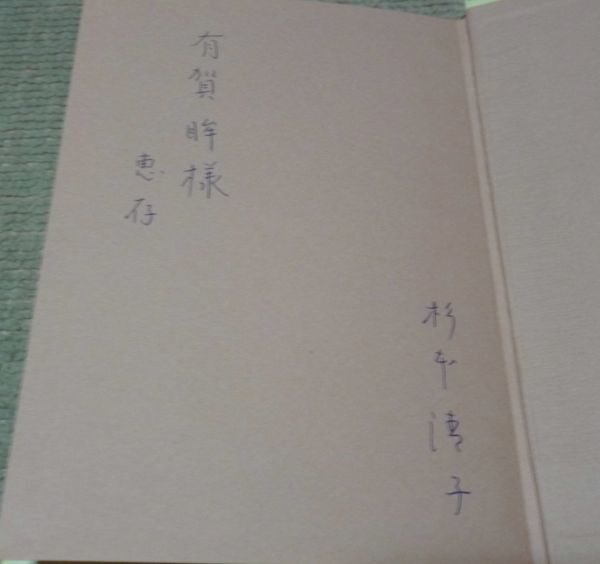 有賀眸様
恵存
杉本清子